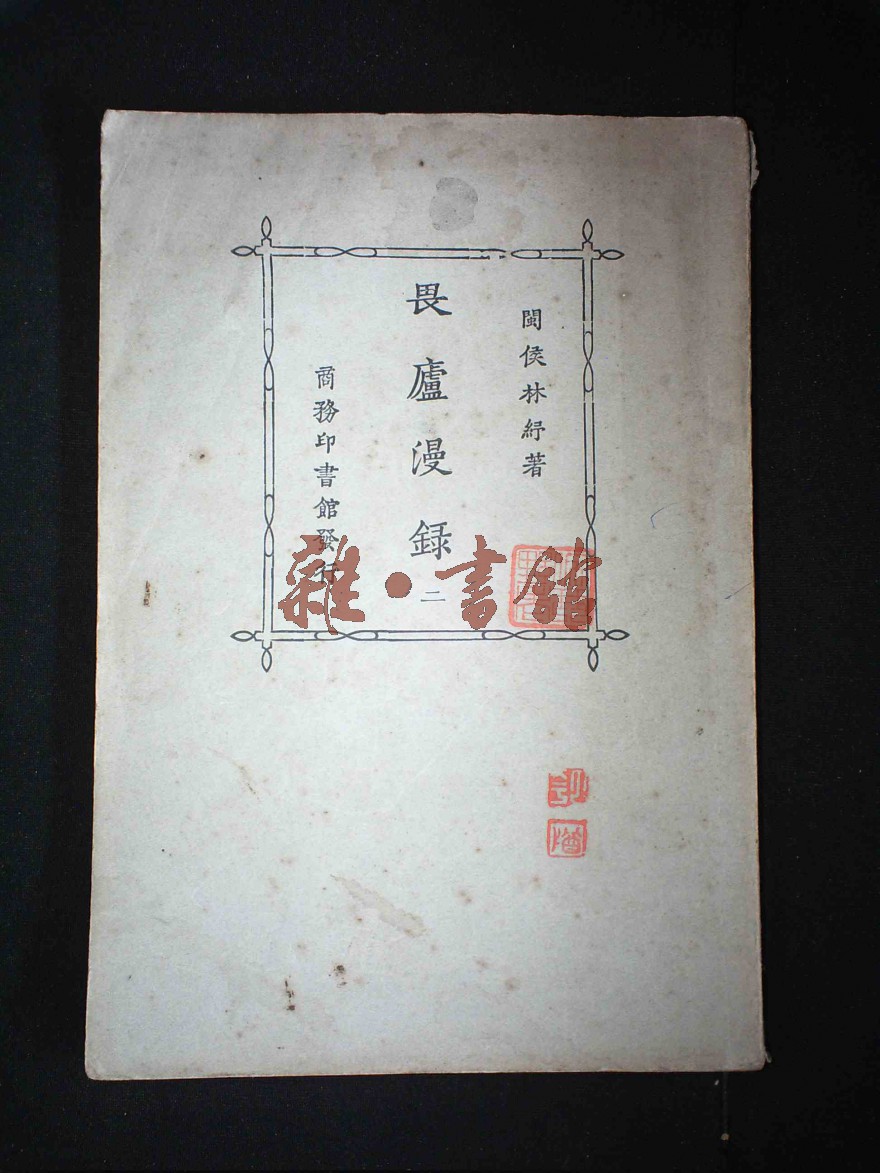 閩侯林紓著
畏廬漫錄
二
商務印書館發行
雜·書館